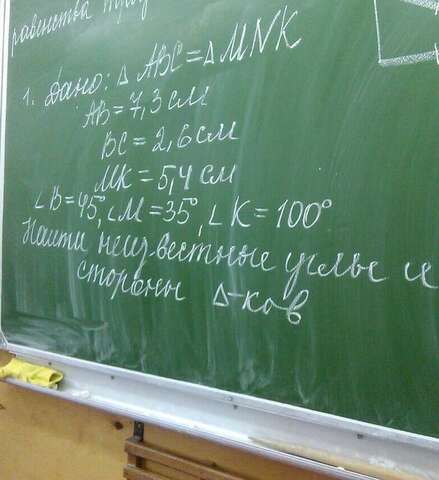 равенства треу
1. Дано: Δ ABC = Δ MNK
AB = 7,3 см
BC = 2,6 см
MK = 5,4 см
∠B = 45°, ∠M = 35°, ∠K = 100°
Найти неизвестные углы и
стороны Δ-ков